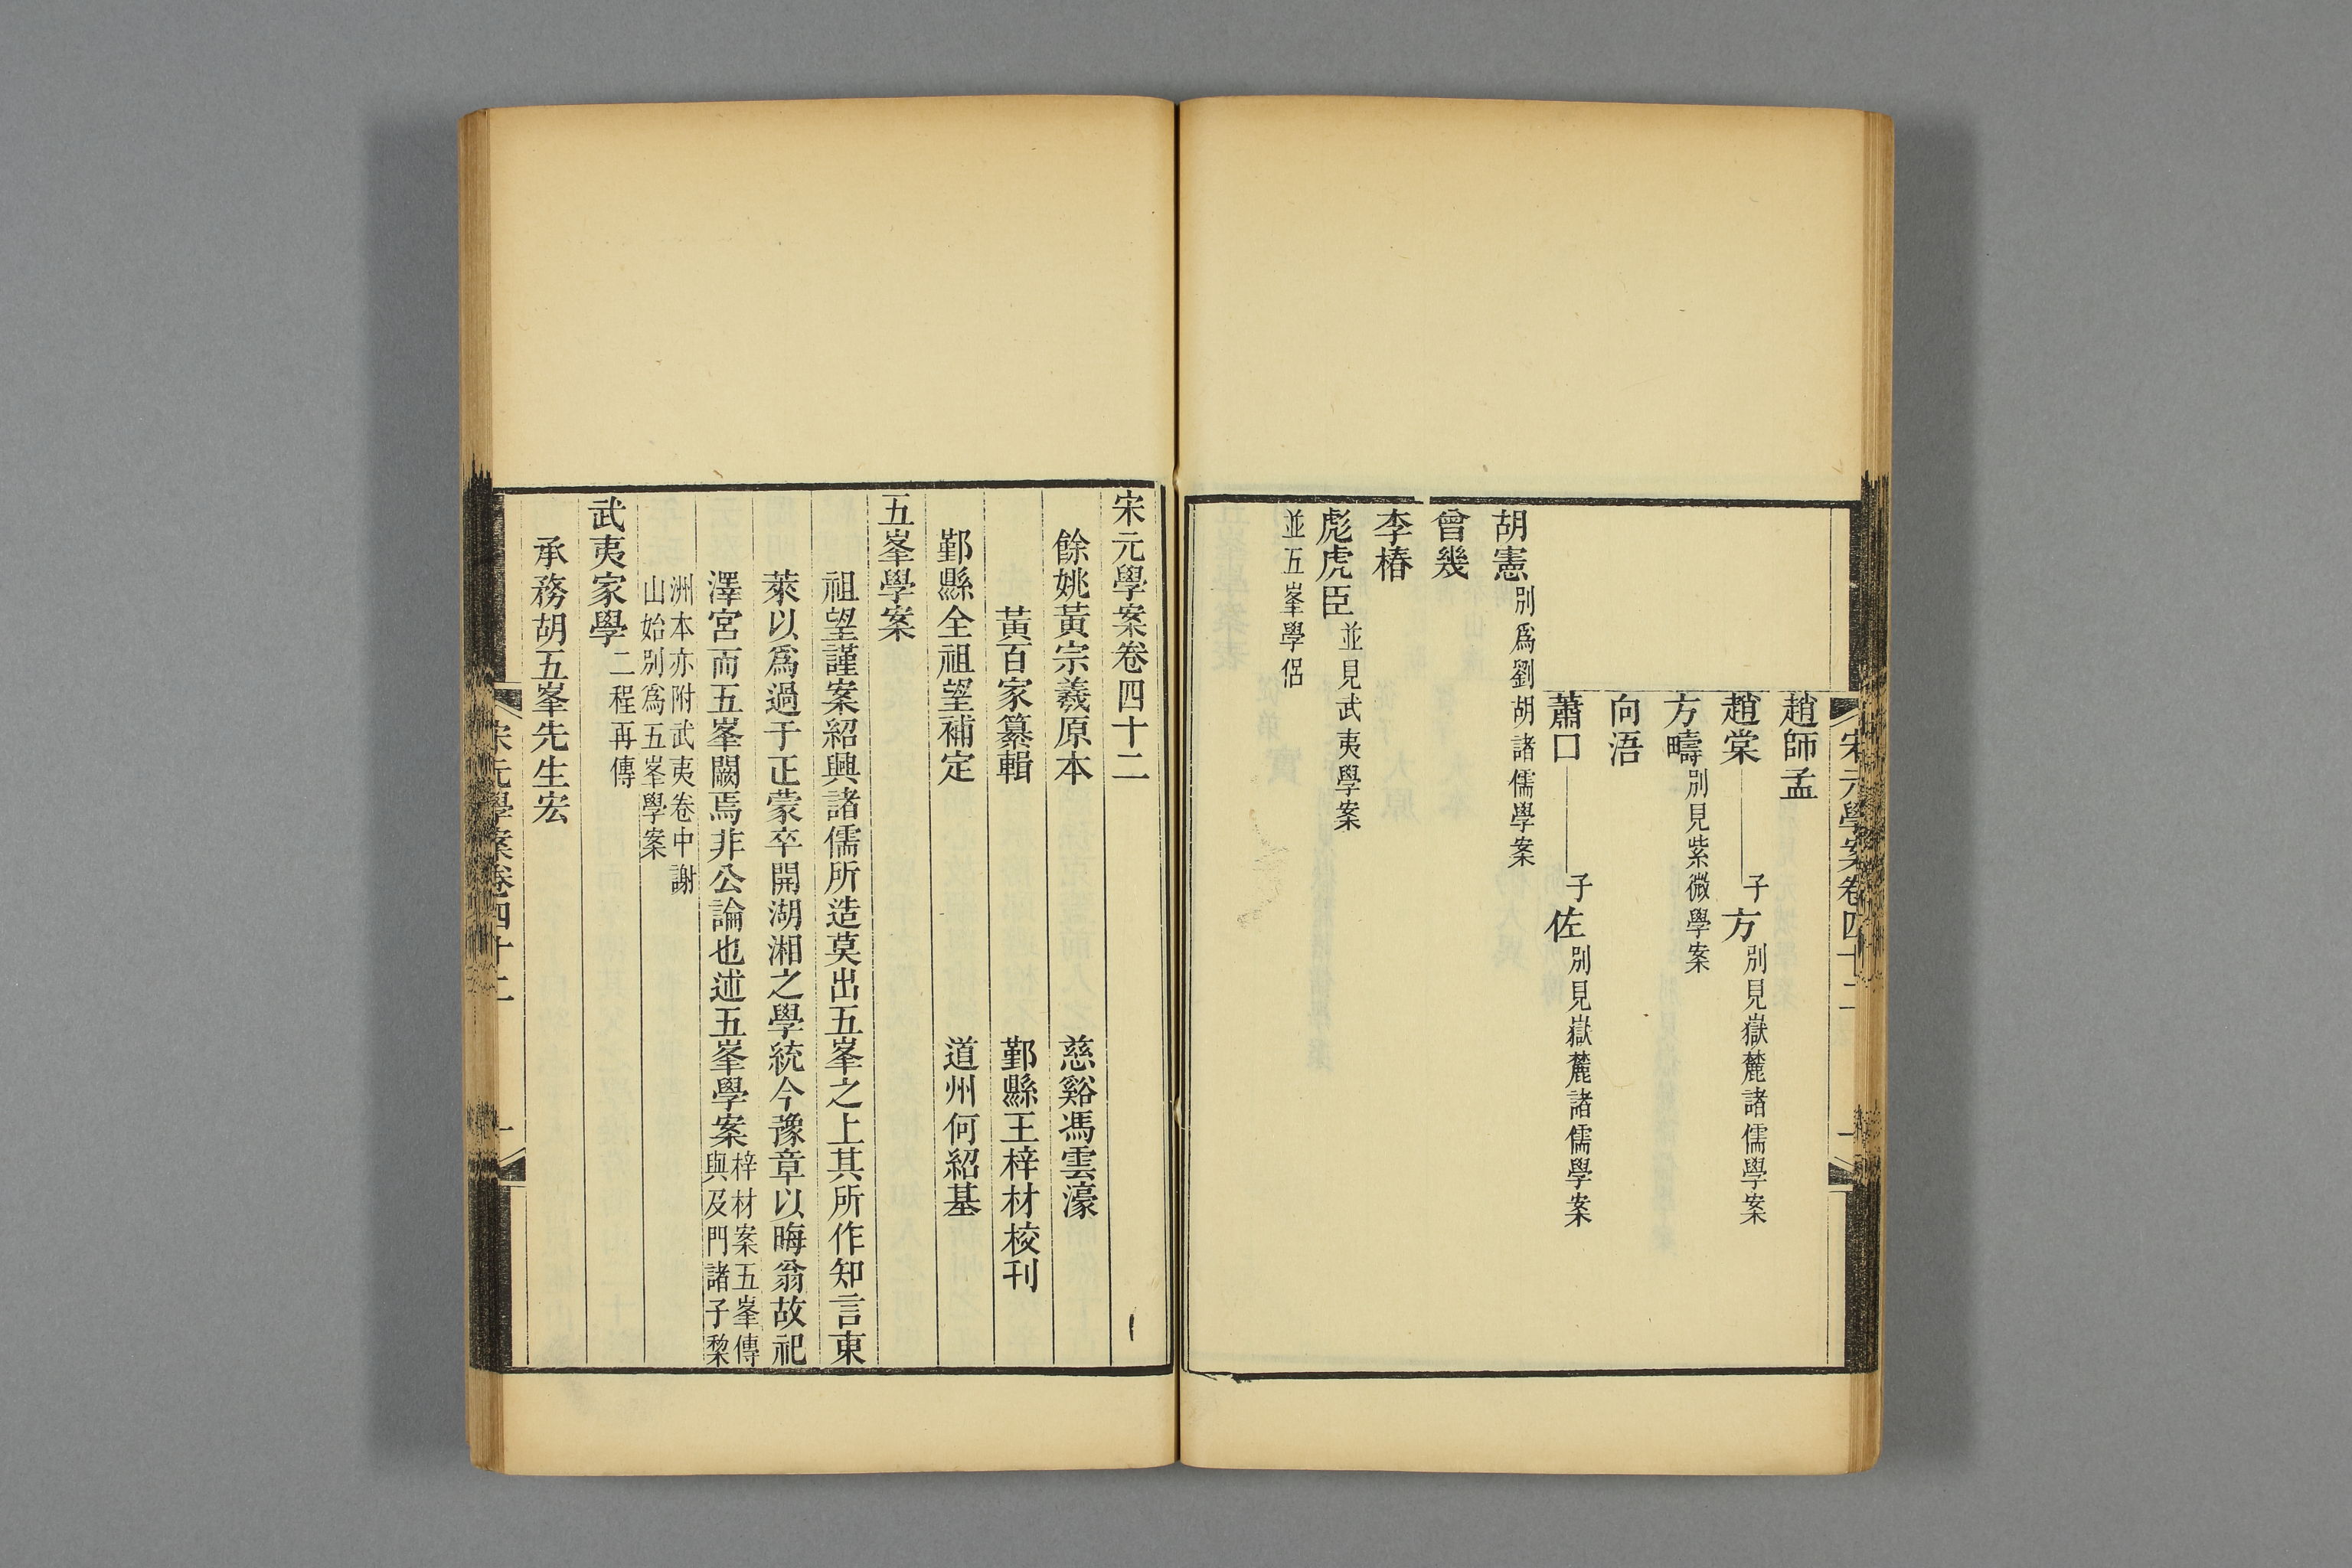 宋元學案卷四十二
趙師孟
趙棠 子方 別見嶽麓諸儒學案
方疇 別見紫微學案
向浯
蕭口 子佐 別見嶽麓諸儒學案
胡憲 別爲劉胡諸儒學案
曾幾
李椿
彪虎臣 並見武夷學案
並五峯學侶
宋元學案卷四十二
餘姚黃宗羲原本 慈谿馮雲濠
黃百家纂輯 鄞縣王梓材校刊
鄞縣全祖望補定 道州何紹基
五峯學案
祖望謹案紹興諸儒所造莫出五峯之上其所作知言東
萊以爲過于正蒙卒開湖湘之學統今豫章以晦翁故祀
澤宮而五峯闕焉非公論也述五峯學案 梓材案五峯傳
與及門諸子黎
洲本亦附武夷卷中謝
山始別爲五峯學案
武夷家學 二程再傳
承務胡五峯先生宏
宋元學案卷四十二